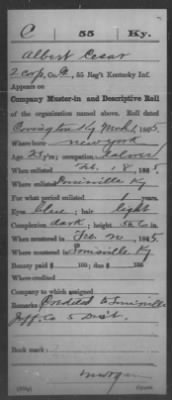 C 55 Ky.
Albert Cesar
2 Corp, Co. G, 55 Reg't Kentucky Inf.
Appears on
Company Muster-in and Descriptive Roll
of the organization named above. Roll dated
Covington Ky Mch 1, 1865.
Where born New York
Age 23 y'rs; occupation
When enlisted Feb. 18, 1865.
Where enlisted Louisville Ky
For what period enlisted 1 years.
Eyes blue; hair light
Complexion dark; height 5 ft. 6 in.
When mustered in Feb. 1865.
Where mustered in Louisville Ky
Bounty paid $ 100; due $ 100
Where credited
Company to which assigned
Remarks Credited to Louisville
Jeff. Co 5 Dist.
Book mark: